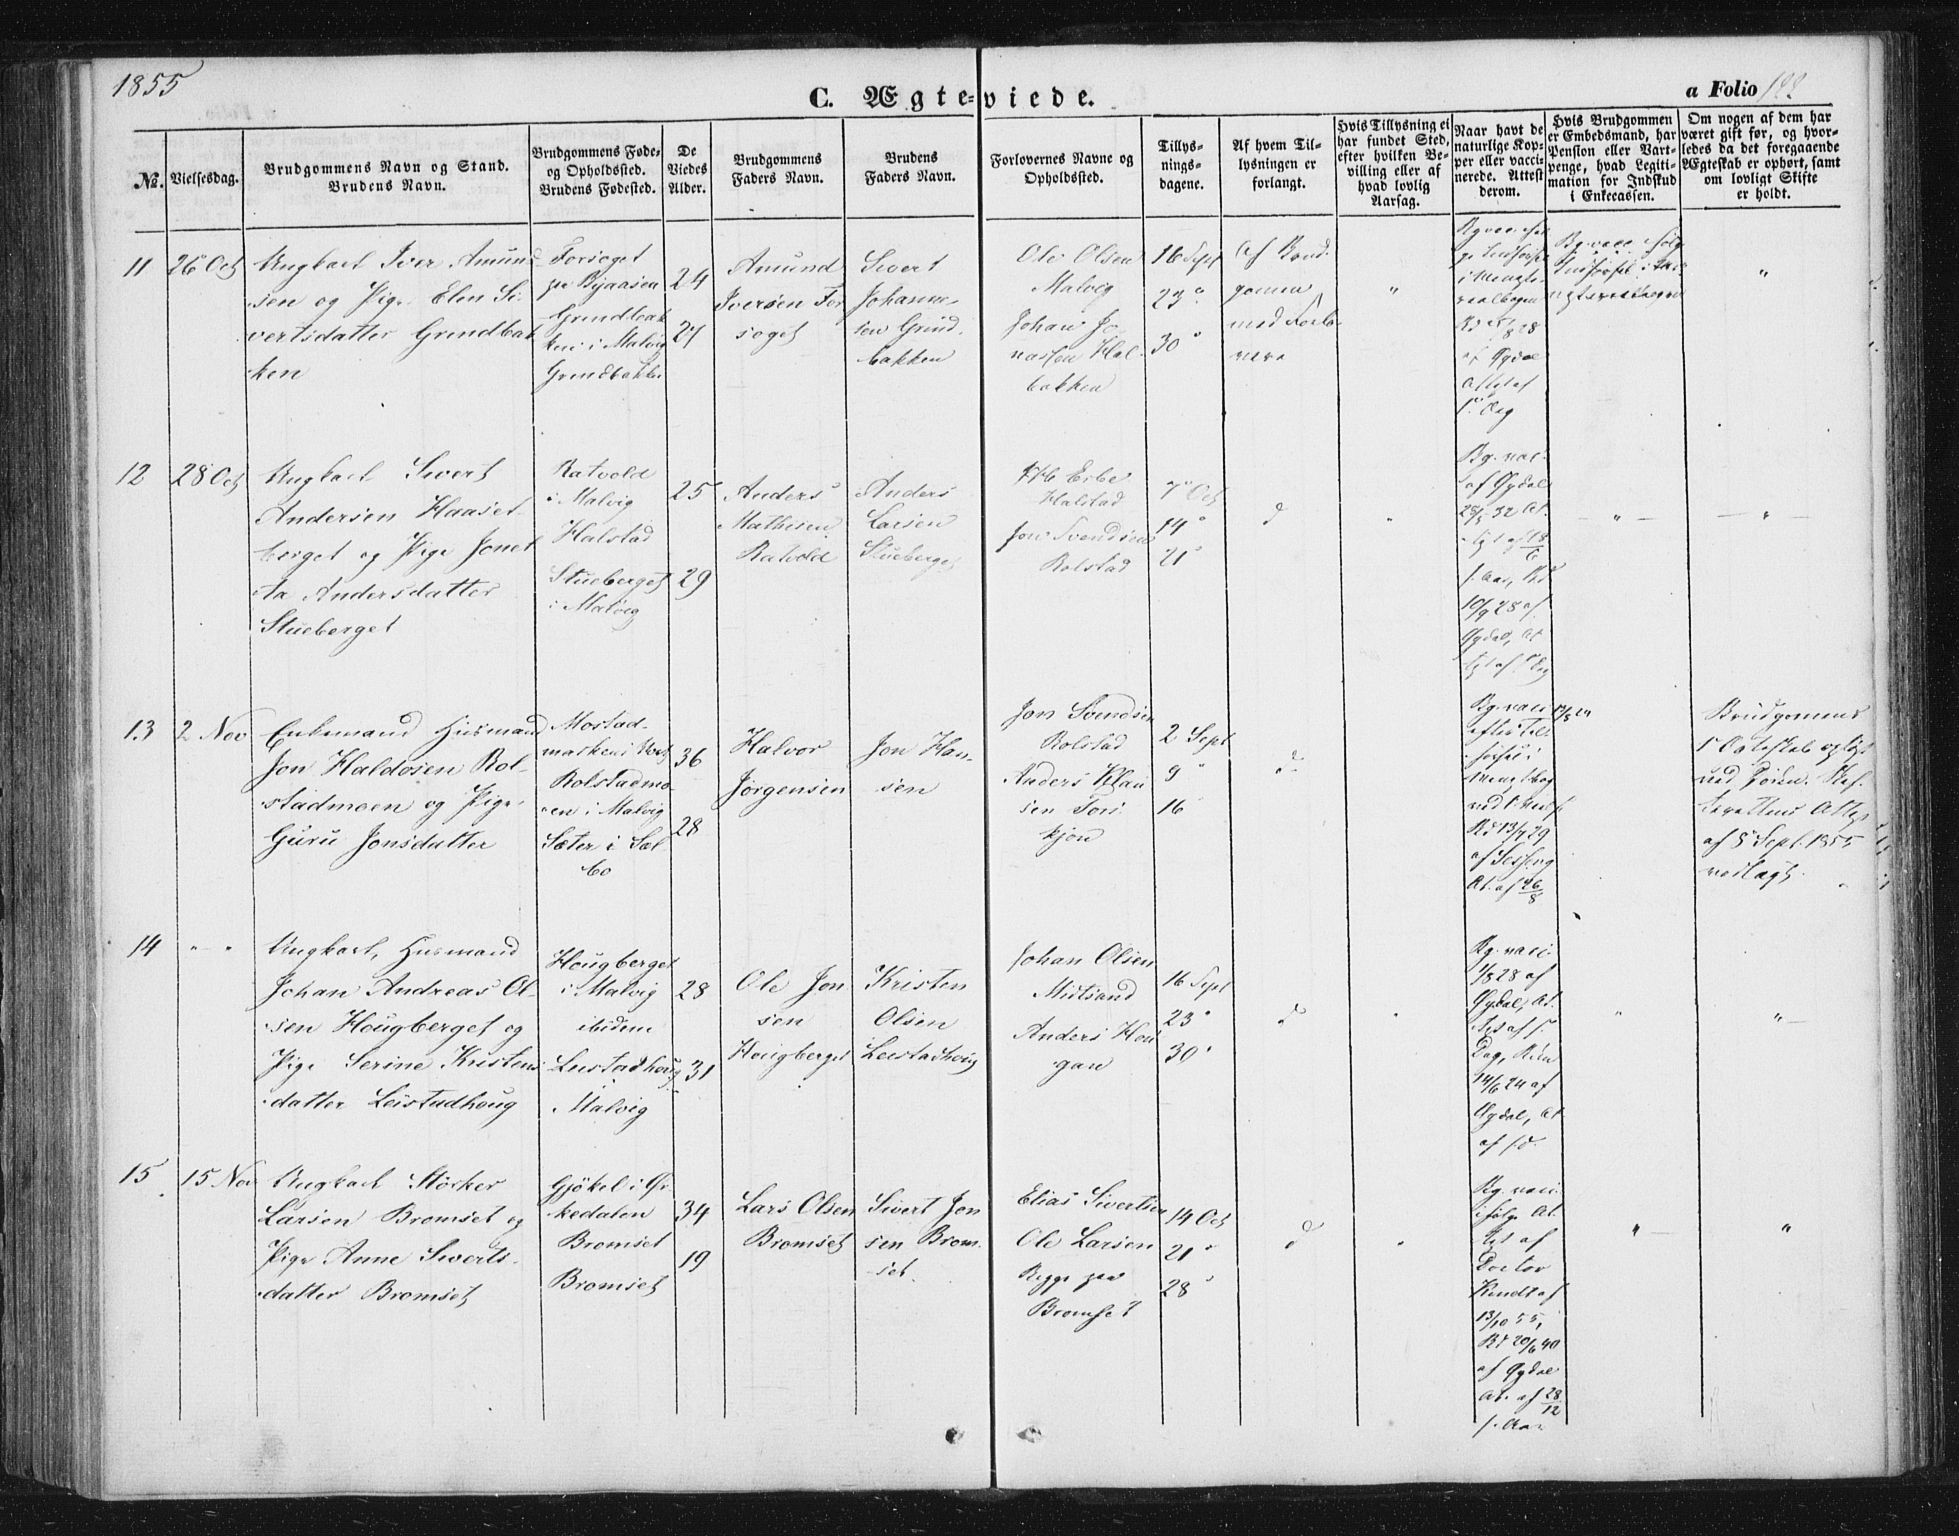 1855
C. Ægteviede.
a Folio 188
No.
Vielsesdag.
Brudgommens Navn og Stand.
Brudens Navn.
Brudgommens Føde-
og Opholdssted.
Brudens Fødested.
De
Viedes
Alder.
Brudgommens
Faders Navn.
Brudens
Faders Navn.
Forlovernes Navne og
Opholdssted.
Tillys-
nings-
dagene.
Af hvem Til-
lysningen er
forlangt.
Hvis Tillysning ei
har fundet Sted,
efter hvilken Be-
villing eller af
hvad lovlig
Aarsag.
Naar havt de
naturlige Kop-
per eller vacci-
nerede. Attest
derom.
Hvis Brudgommen
er Embedsmand, har
Pension eller Vart-
penge, hvad Legiti-
mation for Indskud
i Enkecassen.
Om nogen af dem har
været gift før, og hvor-
ledes da det foregaaende
Ægteskab er ophørt, samt
om lovligt Skifte
er holdt.
11
26 Oct
Ungkarl Iver Amund-
sen og Pige Elen Si-
vertsdatter Grendbak-
ken
Forsøget
paa Byaasen
Grendbak-
ken i Malvig
Grendbakken
24
21
Amund
Iversen For
søget
Sivert
Johanne-
sen Grend-
bakken
Ole Olsen
Malvig
Johan Jo-
nassen Hal-
bakken
16 Sept
23 "
30 "
af Brud-
gommen
med Forlo-
vere
"
af Gydal
"
12
28 Oct
Ungkarl Sivert
Andersen Haaset-
berget og Pige Jonet-
ta Andersdatter
Stueberget
Ratvold
i Malvig
Halstad
Stueberget
i Malvig
25
29
Anders
Mathisen
Ratvold
Anders
Larsen
Stueberget
Halstad
Jon Svendsen
Rolstad
7 Oct
14 "
21 "
d
"
Bg. vac.
af Gydal
10/9 28 af
Gydal, At
— " —
— " —
13
2 Nov
Enkemand Husmand
Jon Haldosen Rol-
stadmoen og Pige
Guru Jonsdatter
Mostad-
marken i Hort
Rolstadmo-
en i Malvig
Sæter i Sæl
bo
36
28
Halvor
Jørgensen
Jon Han-
sen
Jon Svendsen
Rolstad
Anders Klau
sen Tors
kjøn
2 Sept
9 "
16
d.
Bg. vacc
At. af 26/8
Brudgommens
1' Ægteskab opløst
ved Døden. Skif-
terettens Attest
af 8 Sept. 1855
vedlagt.
14
" — "
Ungkarl, Husmand
Johan Andreas Ol-
sen Hougberget og
Pige Serine Kristens
datter Leistadhoug
Hougberget
i Malvig
ibidem
Leistadhoug
i
Malvig
28
31
Ole Jon
sen
Hougberget
Kristen
Olsen
Leistadhoug
Johan Olsen
Midtsand
Anders Hou
gan
16 Sept
23 "
30 "
d
"
Bg. vacc.
1/8 28 af
Gydal, At.
Dag,
14/6 24 af
Gydal, At
af s. d.
"
" —
15
15 Nov
Ungkarl Størker
Larsen Bromset og
Pige Anne Siverts-
datter Bromset
Gjøkel i Ør
kedalen
Bromset
Bromset
34
19
Lars Olsen
Bromset
Sivert Jon
sen Brom-
set.
Elias Sivertsen
Ole Larsen
Begge paa
Bromset
14 Oct
21 "
28 "
d
"
Bg. vacc.
ifølge At
test af
Doctor
Kindt af
13/10 55,
Bd 20/6 40
af Gydal
At. af 28/12
s. Aar
"
"